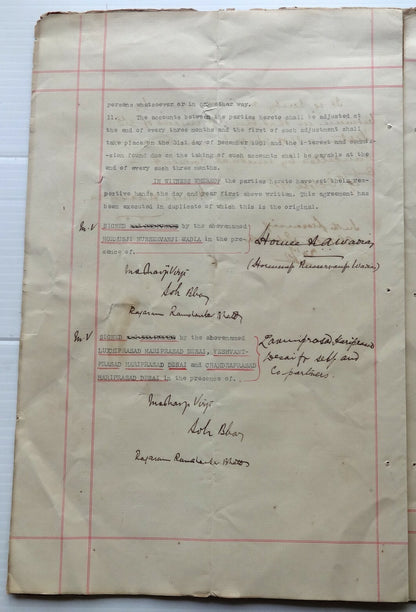 persons whatsoever or in any other way.
11. The accounts between the parties hereto shall be adjusted at
the end of every three months and the first of such adjustment shall
take place on the 31st day of December 1921 and the interest and commis-
sion found due on the taking of such accounts shall be payable at the
end of every such three months.
IN WITNESS WHEREOF the parties hereto have set their res-
pective hands the day and year first above written. This agreement has
been executed in duplicate of which this is the original.
M.V SIGNED by the abovenamed
HORMUSJI NUSSERVANJI WADIA in the pre-
sence of.
Homee N. A. Wadia
(Hormusji Wadia)
Madharji Virji
Ash Bhoy
Rajaram
M.V SIGNED by the abovenamed
LUXMIPRASAD HARIPRASAD DESAI, YESHVANT-
PRASAD HARIPRASAD DESAI and CHANDRAPRASAD
HARIPRASAD DESAI in the presence of.
Laxmiprasad Hariprasad
Desai for self and
Co partners.
Madharji Virji
Ash Bhoy
Rajaram